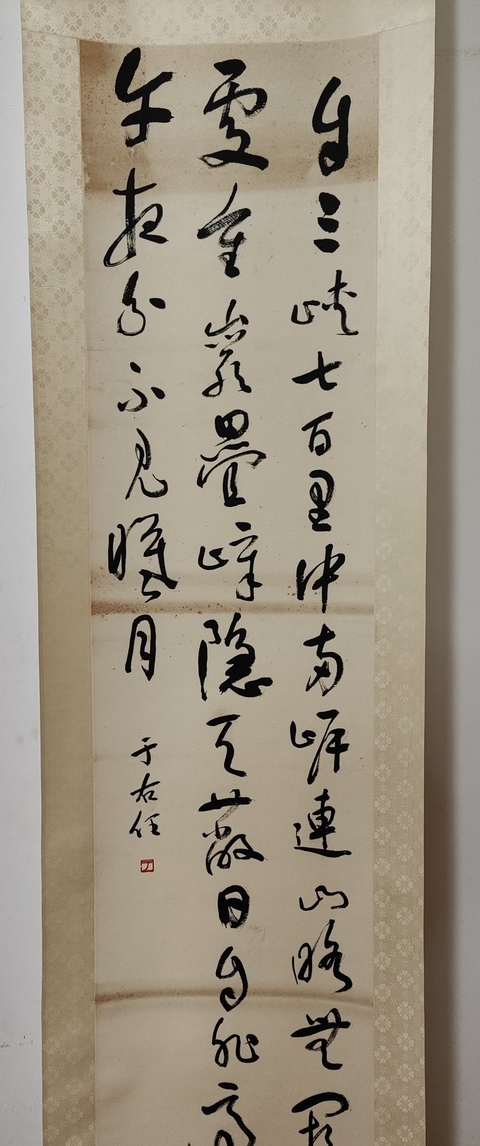 自三峽七百里中兩岸連山略無
處重巖疊嶂隱天蔽日自非亭
午夜分不見曦月
于右任